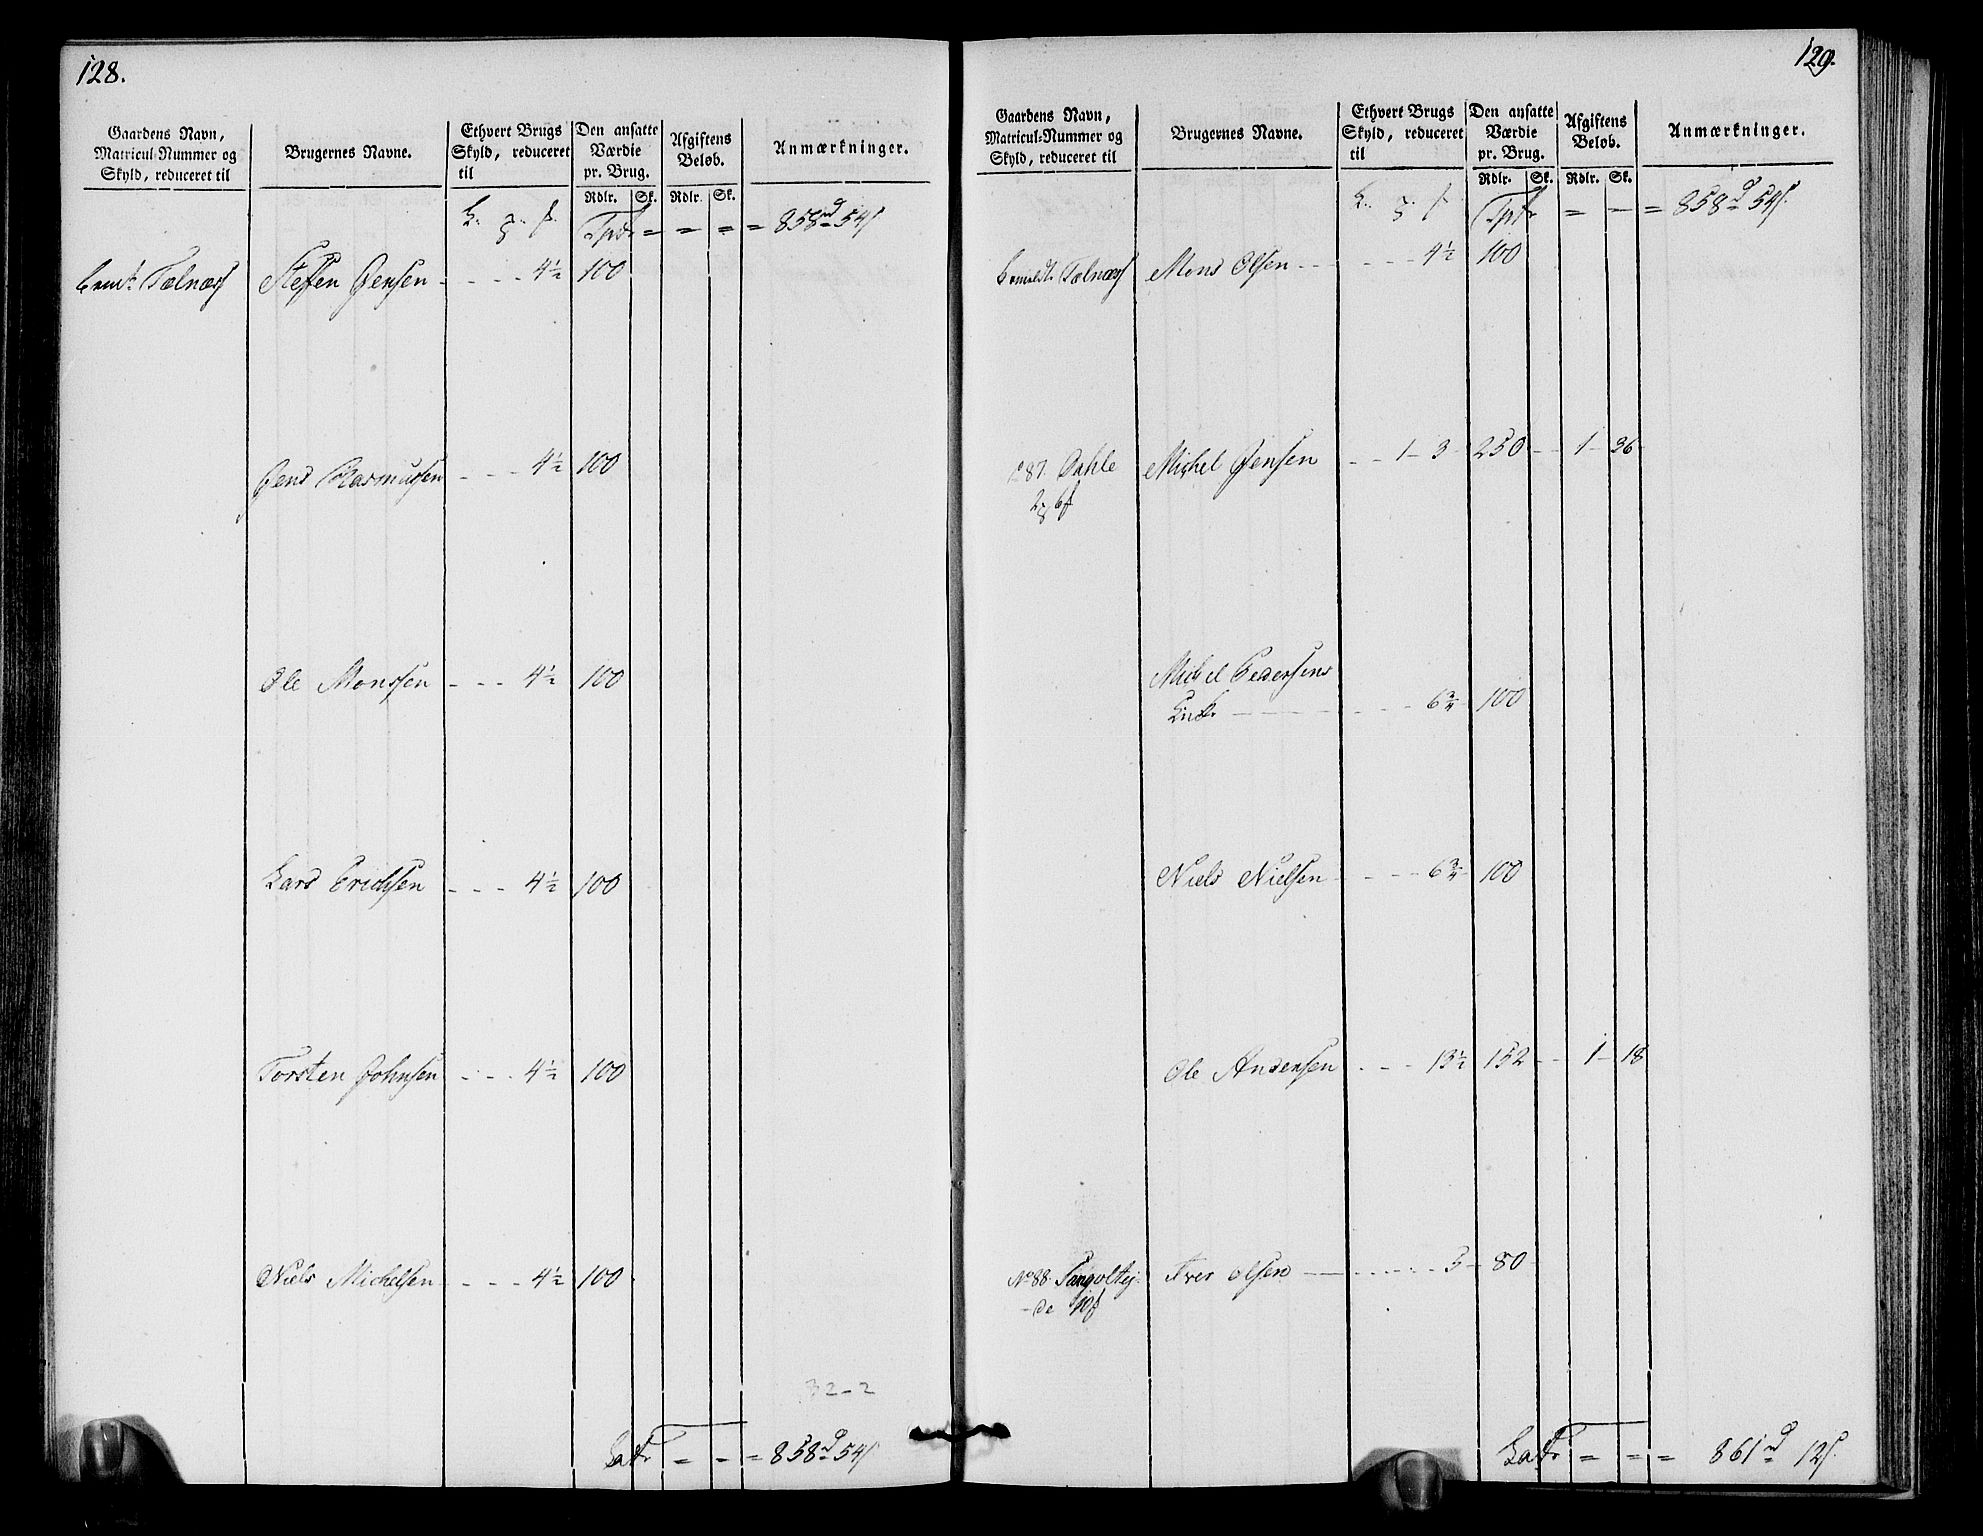 128.
Gaardens Navn,
Matricul-Nummer og
Skyld, reduceret til
Brugernes Navne.
Ethvert Brugs
Skyld, reduceret
til
Den ansatte
Værdie
pr. Brug.
Rdlr. Sk.
Afgiftens
Beløb.
Rdlr. Sk.
Anmærkninger.
Tpt = = = = 858 rd 54 s
Tælnæs Steffen Jensen - - - 4½ 100
Jens Rasmussen - - - 4½ 100
Ole Monssen - - - 4½ 100
Lars Erichsen - - - 4½ 100
Torsten Johnsen - - - 4½ 100
Niels Michelsen - - - 4½ 100
32-2
Latr = = = 858 rd 54 s
129.
Gaardens Navn,
Matricul-Nummer og
Skyld, reduceret til
Brugernes Navne.
Ethvert Brugs
Skyld, reduceret
til
Den ansatte
Værdie
pr. Brug.
Rdlr. Sk.
Afgiftens
Beløb.
Rdlr. Sk.
Anmærkninger.
Tpt = = = 858 rd 54 s.
Bemeldte Tælnæs Mons Olsen - - - 4½ 100
87. Dahle Michel Jensen - - 1 - 3 250 - - 1 - 36
Michel Pedersens
Enke - - - - 6¾ 100
Niels Nielsen - - - 6¾ 100
Ole Andersen - - - 13½ 152 - - 1 - 18
No 88. Iver Olsen - - - - 3 - 80
Latr = = = 861 rd 12 s.